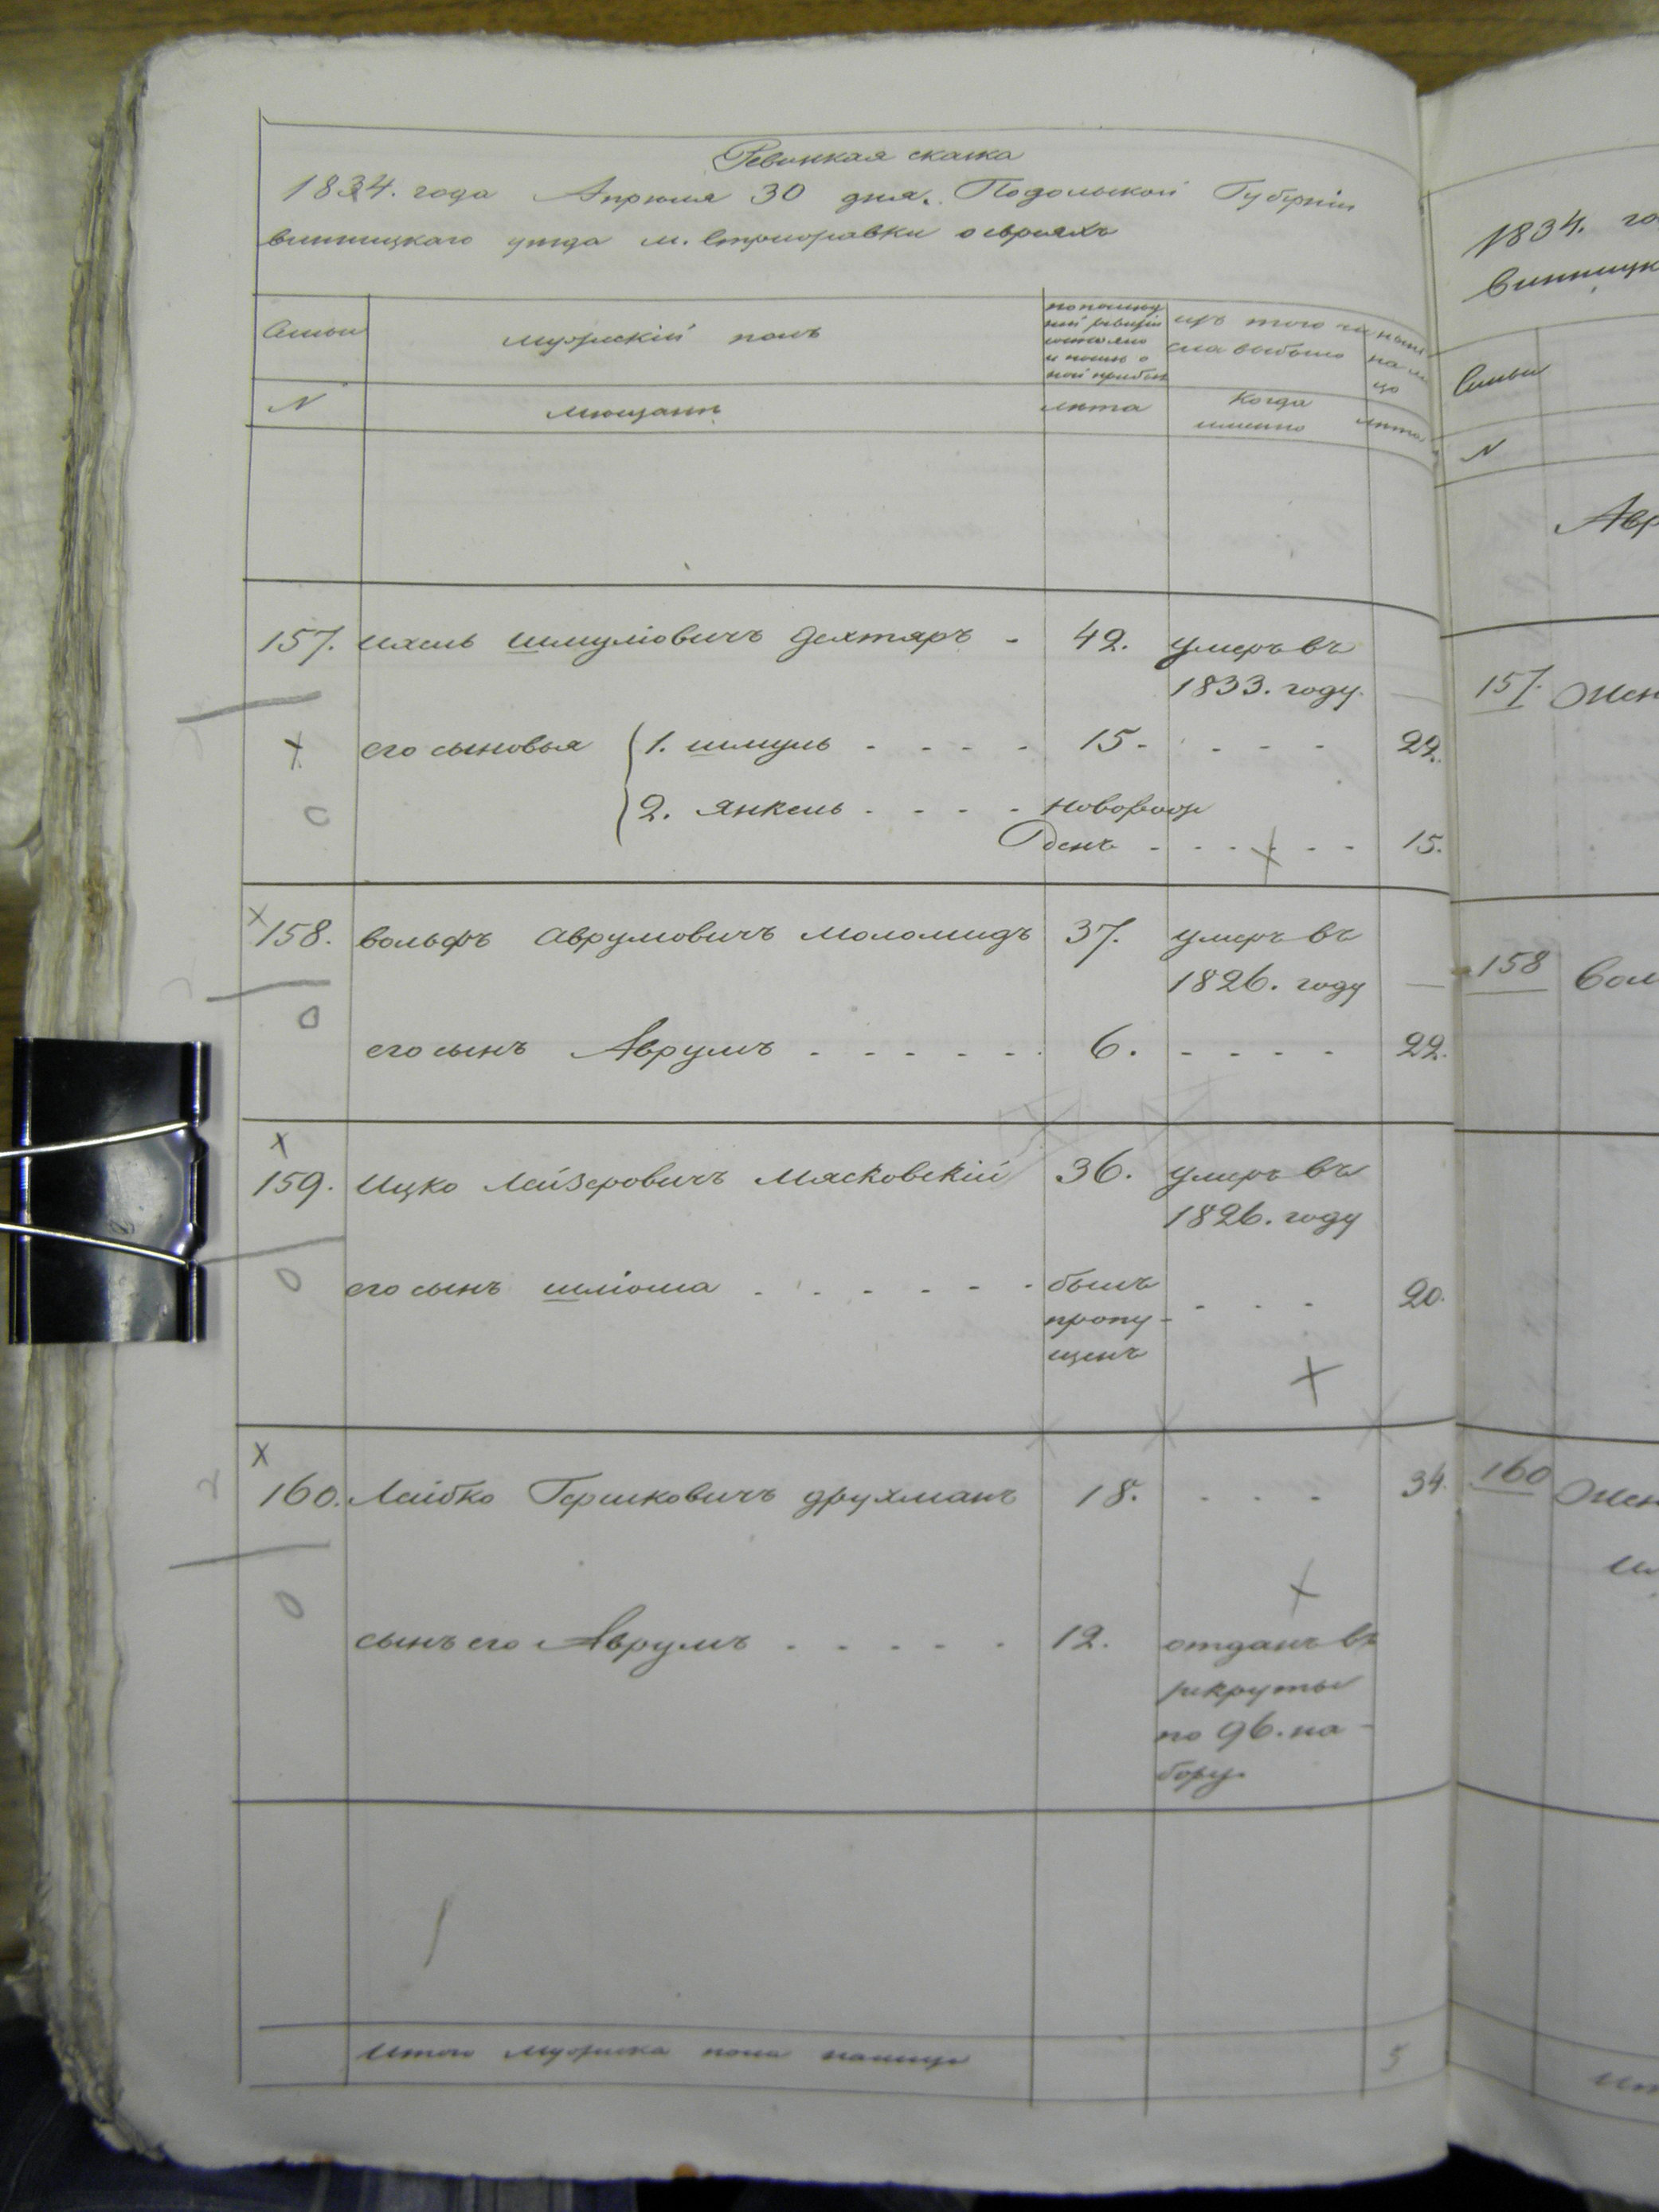 Ревизкая сказка
1834. года Апреля 30 дня. Подольской Губерніи
винницкаго уезда м. Стрижавки о евреяхъ
Семьи
мужескій полъ
изъ того чи
сла выбыло
N
мещане
лета
Когда
именно
лета
157. Ихель Шмуліовичъ дехтяръ - 42. умеръ въ
1833. году. —
его сыновья 1. шмуль - - - - 15 - - - - 29.
2. Янкель - - - - новорож
денъ - - - - - - 15.
158. вольфъ Аврумовичъ Моломидъ 37. умеръ въ
1826. году —
его сынъ Аврумъ - - - - - - 6. - - - - 22.
159. Ицко Лейзеровичъ Мясковскій 36. умеръ въ
1826. году
его сынъ шліома - - - - - - былъ
пропу- - - - 20.
щенъ
160. Лейбко Гершковичъ друхманъ 18. - - - 34.
сынъ его Аврумъ - - - - - 12. отданъ въ
рекруты
по 96. на-
бору
Итого мужеска пола налицо 5
1834. го
Винницк
Семьи
N
Авр
157. Жен
158 Вол
160 Жен